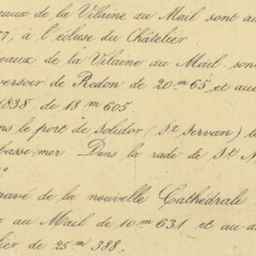 eaux de la Vilaine au Mail sont au
77, à l'écluse du Châtelier
eaux de la Vilaine au Mail son
versoir de Redon de 20 m 65, et au
1838 de 18 m 605.
ns le port de Solidor (St. Servan) l
basse mer Dans la rade de St. M
gravé de la nouvelle Cathédrale
au Mail de 10 m 631 et au d
lier de 25 m 388.